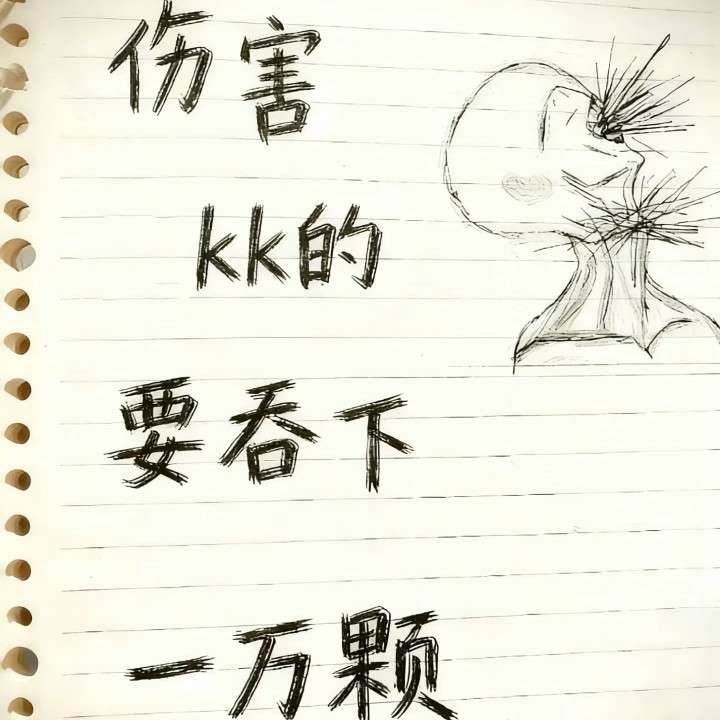 伤害
kk的
要吞下
一万颗